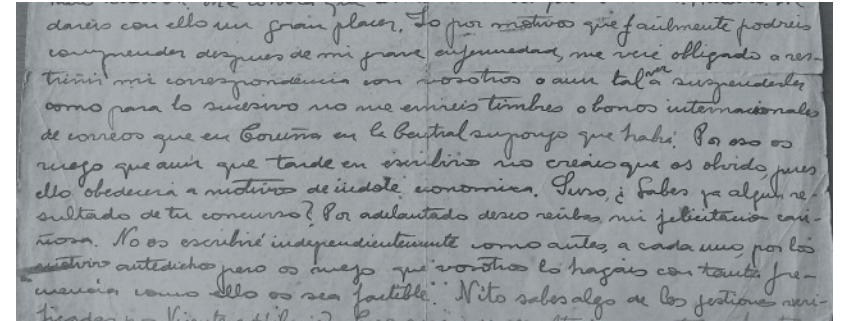 dareis con ello un gran placer. Yo por motivos que facilmente podreis
comprender despues de mi grave enfermedad, me veré obligado a res-
trinir mi correspondencia con vosotros o aun tal vez a suspenderla
como para lo sucesivo no me envieis timbres o bonos internacionales
de correos que en Coruña en la Central supongo que habrá. Por eso os
ruego que aun que tarde en escribiros no creáis que os olvido, pues
ello, obedecerá a motivos de indole economica. Suso, ¿Sabes ya algun re-
sultado de tu concurso? Por adelantado deseo recibas, mi felicitacion cari-
ñosa. No os escribiré independientemente como antes, a cada uno, por los
motivos antedichos pero os ruego que vosotros lo hagais con tanta fre-
cuencia como ello os sea factible. Nito sabes algo de las gestiones veri-
ficadas por